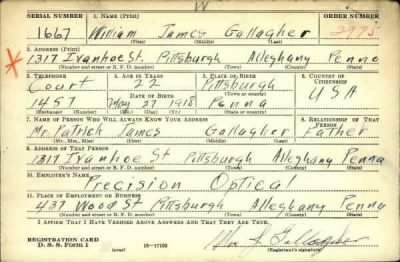 W
SERIAL NUMBER 1. NAME (Print) ORDER NUMBER
1667 William James Gallagher 2975
(First) (Middle) (Last)
2. ADDRESS (Print)
1317 Ivanhoe St Pittsburgh Alleghany Penna
(Number and street or R. F. D. number) (Town) (County) (State)
3. TELEPHONE 4. AGE IN YEARS 5. PLACE OF BIRTH 6. COUNTRY OF CITIZENSHIP
Court 22 Pittsburgh
(Town or county)
1457 May 27 1918 Penna USA
(Exchange) (Number) (Mo.) (Day) (Yr.) (State or country)
7. NAME OF PERSON WHO WILL ALWAYS KNOW YOUR ADDRESS 8. RELATIONSHIP OF THAT PERSON
Mr. Patrick James Gallagher Father
(Mr., Mrs., Miss) (First) (Middle) (Last)
9. ADDRESS OF THAT PERSON
1317 Ivanhoe St Pittsburgh Alleghany Penna
(Number and street or R. F. D. number) (Town) (County) (State)
10. EMPLOYER'S NAME
Precision Optical
11. PLACE OF EMPLOYMENT OR BUSINESS
437 Wood St Pittsburgh Alleghany Penna
(Number and street or R. F. D. number) (Town) (County) (State)
I AFFIRM THAT I HAVE VERIFIED ABOVE ANSWERS AND THAT THEY ARE TRUE.
REGISTRATION CARD
D. S. S. Form 1 (over) 16—17105 Wm J Gallagher
(Registrant's signature)